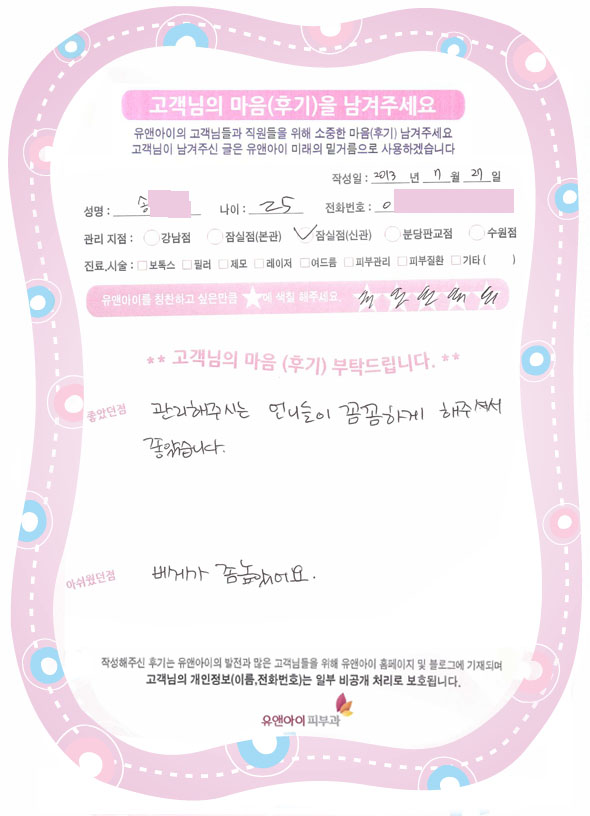 고객님의 마음(후기)을 남겨주세요
유앤아이의 고객님들과 직원들을 위해 소중한 마음(후기) 남겨주세요
고객님이 남겨주신 글은 유앤아이 미래의 밑거름으로 사용하겠습니다
작성일 : 2013 년 7 월 27 일
성명 : 송 나이 : 25 전화번호 : 0
관리 지점 : 강남점 잠실점(본관) 잠실점(신관) 분당판교점 수원점
진료,시술 : 보톡스 필러 제모 레이저 여드름 피부관리 피부질환 기타 ( )
유앤아이를 칭찬하고 싶은만큼 ★에 색칠 해주세요.
** 고객님의 마음 (후기) 부탁드립니다. **
좋았던점 관리해주시는 언니들이 꼼꼼하게 해주셔서
좋았습니다.
아쉬웠던점 베게가 좀높았어요.
작성해주신 후기는 유앤아이의 발전과 많은 고객님들을 위해 유앤아이 홈페이지 및 블로그에 기재되며
고객님의 개인정보(이름,전화번호)는 일부 비공개 처리로 보호됩니다.
유앤아이피부과